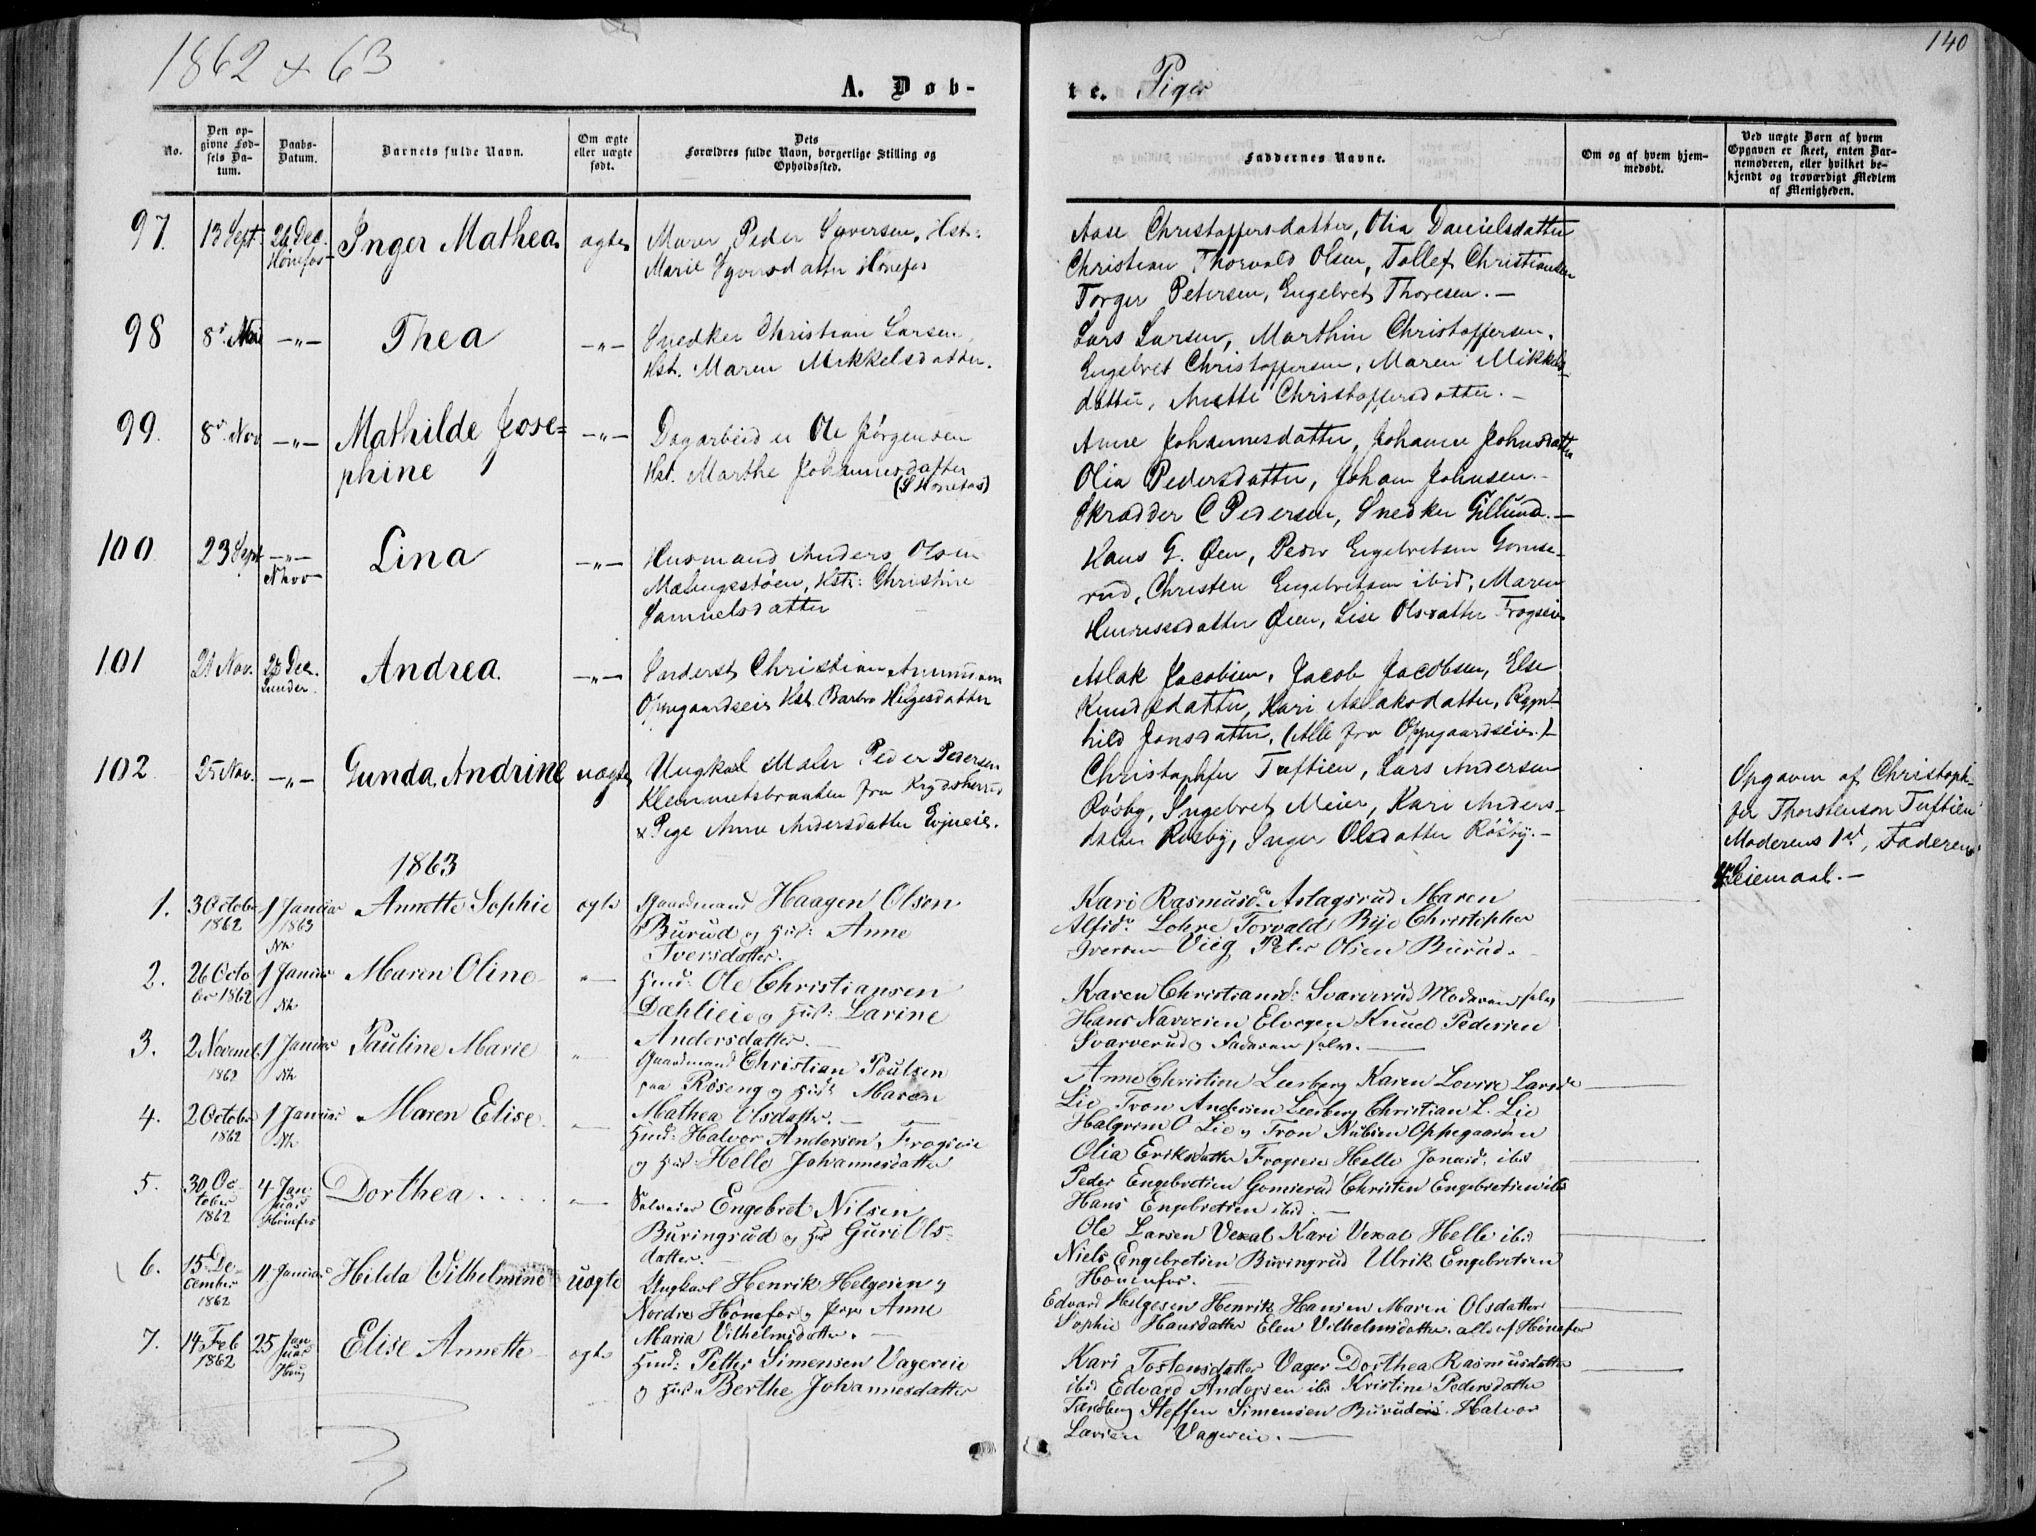 1862 & 63
A. Døb-
te. Piger
140
No.
Den op-
givne Fød-
sels Da-
tum.
Daabs-
Datum.
Barnets fulde Navn.
Om ægte
eller uægte
født.
Dets
Forældres fulde Navn, borgerlige Stilling og
Opholdssted.
Faddernes Navne.
Om og af hvem hjem-
medøbt.
Ved uægte Børn af hvem
Opgaven er skeet, enten Bar-
nemoderen, eller hvilket be-
kjendt og troværdigt Medlem
af Menigheden.
97. 13 Sept. 26 Dec. Hønefos Inger Mathea ægte
Murer Peder Syversen, Hst:
Marie Syversdatter Hønefos
Aase Christoffersdatter, Olia Danielsdatter
Christian Thorvald Olsen, Tollef Christiansen
Torger Petersen, Engebret Thoresen. —
98 8de Nov —„— Thea —„—
Snedker Christian Larsen,
Hst. Maren Mikkelsdatter.
Lars Larsen, Marthin Christoffersen,
Engebret Christoffersen, Maren Mikkels-
datter, Anette Christoffersdatter. —
99. 8de Nov —„— Mathilde Jose=
phine —„—
Dagarbeider Ole Jørgensen
Hst. Marthe Johannesdatter
(S Hønefos)
Anne Johannesdatter, Johanne Johnsdatter
Olia Pedersdatter, Johan Johnsen. —
Skrædder C Pedersen, Snedker Gillund. —
100 23 Sept —„—
Lina —„—
Husmand Anders Olsen
Christine
Samuelsdatter
Hans G. Øen, Peder Engebretsen Gomse-
rud, Christen Engebretsen ibid, Maren
Henriksdatter Øen, Lise Olsdatter Frogseie
101 21 Nov. 26 Dec.
Lunder. Andrea. —„—
Christian
Oppegaardseie Hst. Barbro Helgesdatter
Aslak Jacobsen, Jacob Jacobsen, Else
Knudsdatter, Kari Aslaksdatter, Ragn-
hild Jonsdatter, (Alle fra Oppegaardseie.)
102 25 Nov. —„— Gunda Andrine uægte
Ungkarl Maler Peder Pedersen
Klemmetsbraaten fra Krydsherred
& Pige Anne Andersdatter Evjueie.
Christopher Tuftien, Lars Andersen
Røsby, Ingebret Meier, Kari Anders-
datter Røsby, Inger Olsdatter Røsby. —
Opgaven af Christoph-
fer Thorstensen Tuftien
Moderens 1st, Faderens
Leiemaal. —
1863
1. 3 October
1862 1 Januar
1863
Nh Annette Sophie ægte
Gaardmand Haagen Olsen
Burud og Hust: Anne
Iversdatter.
Kari Rasmusdr Astagsrud Maren
Alfsdr Lohre Torvald Bye Christopher
Iversen Viig Peter Olsen Burud.
2. 26 Octo
ber 1862 1 Januar
Nh Maren Oline „
Husm: Ole Christiansen
Dæhlieie og Hust: Larine
Andersdatter.
Karen Christiansd: Svarverud Moderen selv
Hans Narveien Elvegen Knud Pedersen
Svarverud og Faderen selv. —
3. 2 Novemb.
1862 1 Januar
Nh Pauline Marie „
Gaardmand Christian Poulsen
paa Røseng og Hust. Maren
Mathea Olsdatter. —
Anne Christine Leerberg Karen Lovise Larsdr
Lie Tron Andersen Leerberg Christian L. Lie
Halgrim O Lie og Tron Nilsen Oppegaarden
4. 2 October
1862 1 Januar
Nh Maren Elise „
Husm: Halvor Andersen, Frogseie
og Hust: Helle Johannesdatter
Olia Eriksdatter Frogseie Helle Jonasd. ibd
Peder Engebretsen Gomserud Christen Engebretsen ibd
Hans Engebretsen ibid. —
5. 30 Oc-
tober
1862 4 Jan-
uar
Hønefos Dorthea . . . . „
Selveier Engebret Nilsen
Buringrud og Hst Guri Ols-
datter.
Ole Larsen Vexal Kari Vexal Helle ibd
Niels Engebretsen Buringrud Ulrik Engebretsen
Hønnefos. —
6. 15 De-
cember
1862 11 Januar Hilda Vilhelmine uægte
Ungkarl Henrik Helgesen
Nordre Hønefos og Pige Anne
Maria Vilhelmsdatter. —
Edvard Helgesen Henrik Hansen Maren Olsdatter
Sophie Hansdatter Elen Vilhelmsdatter. alle af Hønefos
7. 14 Feb
1862 25 Jan
uar
Haug Elise Annette ægte
Husm: Petter Simensen Vagereie
og Hust. Berthe Johannesdatter
Kari Tostensdatter Vager Dorthea Rasmusdatter
ibd Edvard Andersen ibd Kristine Pedersdatter
Tandberg Steffen Simensen Burudeie. Halvor
Larsen Vagereie. —